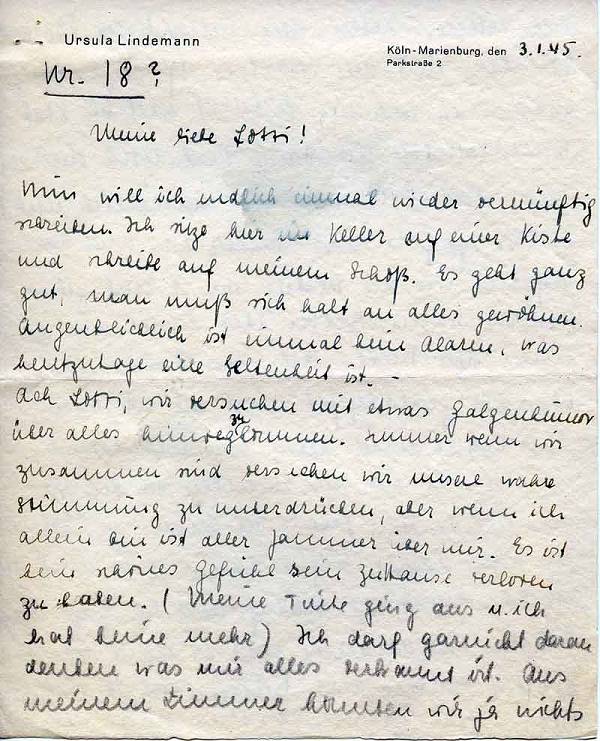 Ursula Lindemann
Köln-Marienburg, den 3.1.45.
Parkstraße 2
Nr. 18?
Meine liebe Lotti!
Nun will ich endlich einmal wieder vernünftig
schreiben. Ich sitze hier im Keller auf einer Kiste
und schreibe auf meinem Schoß. Es geht ganz
gut, man muß sich halt an alles gewöhnen.
Augenblicklich ist einmal kein Alarm, was
heutzutage eine Seltenheit ist. –
Ach Lotti, wir versuchen mit etwas Galgenhumor
über alles hinwegzukommen. Immer wenn wir
zusammen sind versuchen wir unsere wahre
Stimmung zu unterdrücken, aber wenn ich
allein bin ist aller Jammer über mir. Es ist
kein schönes Gefühl sein Zuhause verloren
zu haben. (Meine Tinte ging aus u. ich
hab keine mehr) Ich darf garnicht daran
denken was mir alles verbrannt ist. Aus
meinem Zimmer konnten wir ja nichts